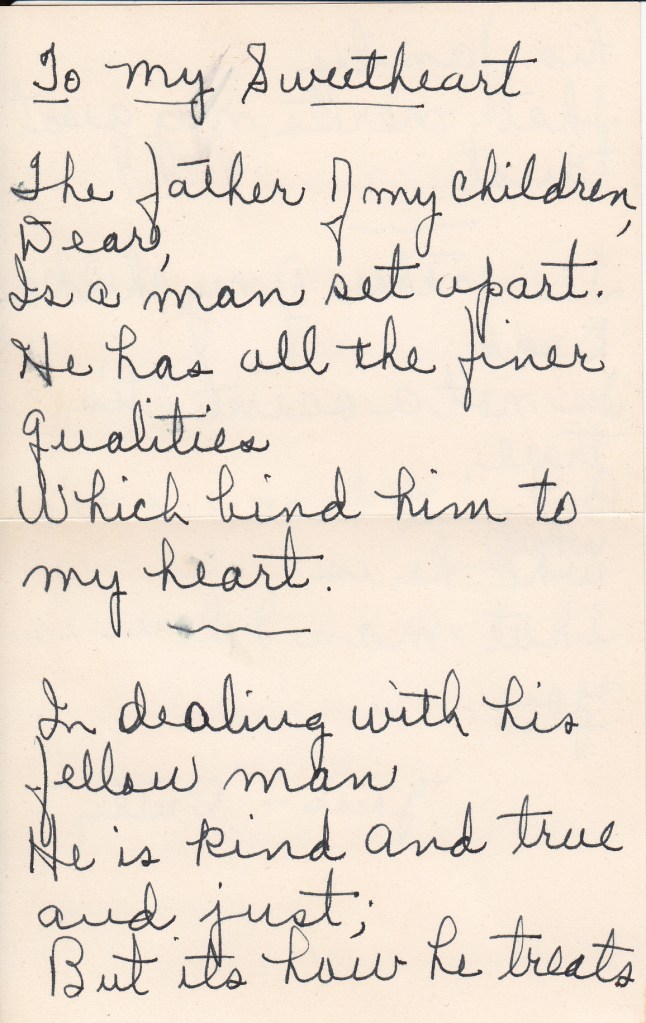 To my Sweetheart
The father of my children,
Dear,
Is a man set apart.
He has all the finer
qualities
Which bind him to
my heart.
In dealing with his
fellow man
He is kind and true
and just;
But its how he treats